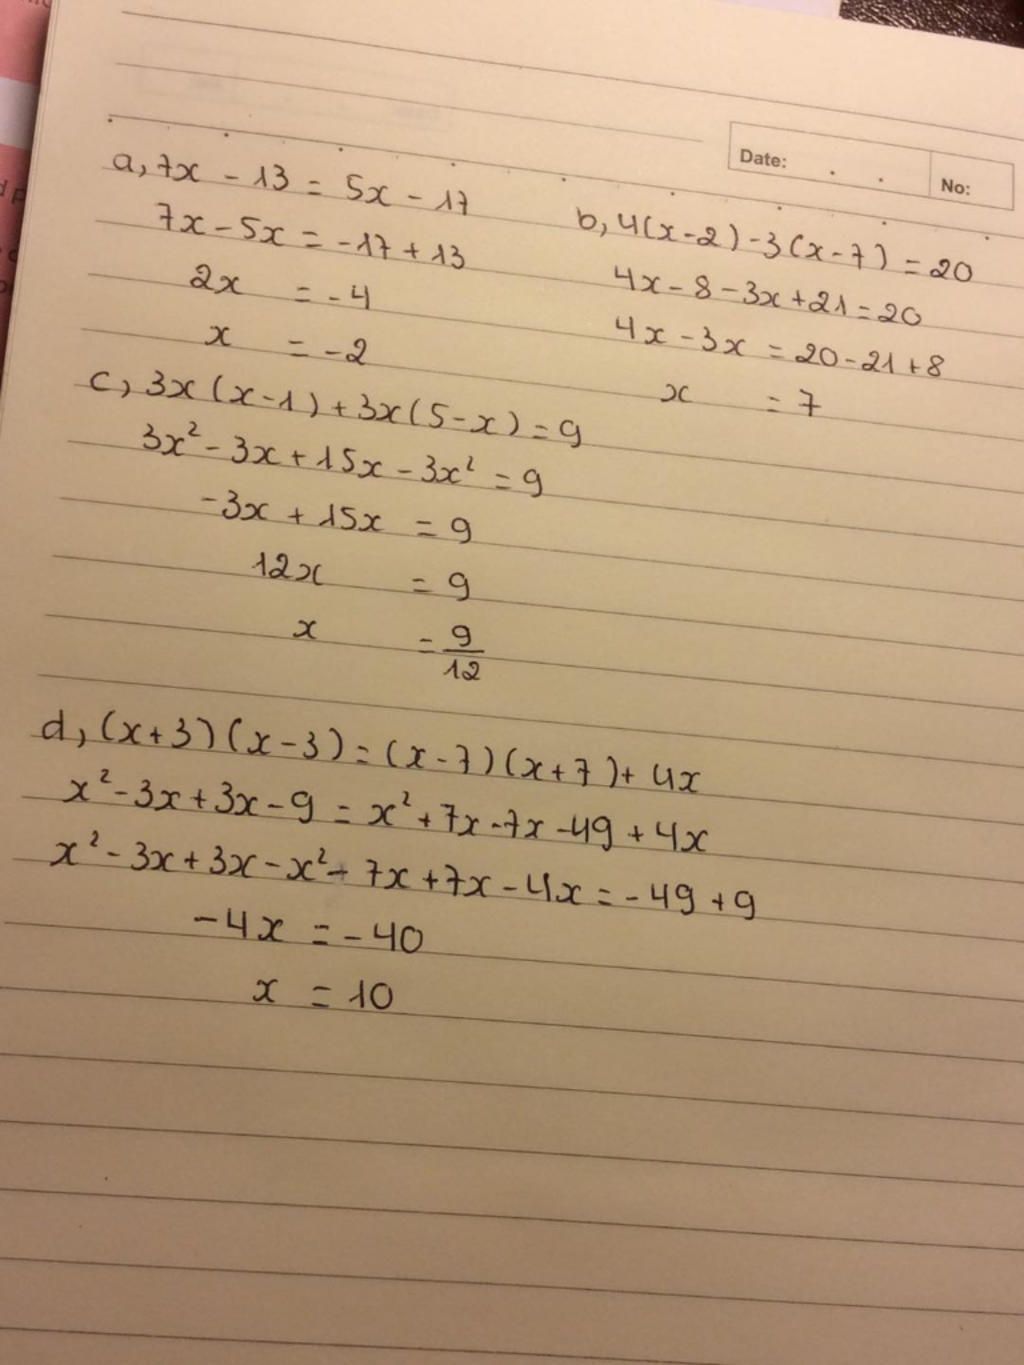 Date:
No:
a, 7x - 13 = 5x - 17
7x - 5x = -17 + 13
2x = -4
x = -2
b, 4(x-2) - 3(x-7) = 20
4x - 8 - 3x + 21 = 20
4x - 3x = 20 - 21 + 8
x = 7
c, 3x(x-1) + 3x(5-x) = 9
3x² - 3x + 15x - 3x² = 9
-3x + 15x = 9
12x = 9
x = 9/12
d, (x+3)(x-3) = (x-7)(x+7) + 4x
x² - 3x + 3x - 9 = x² + 7x - 7x - 49 + 4x
x² - 3x + 3x - x² - 7x + 7x - 4x = -49 + 9
-4x = -40
x = 10